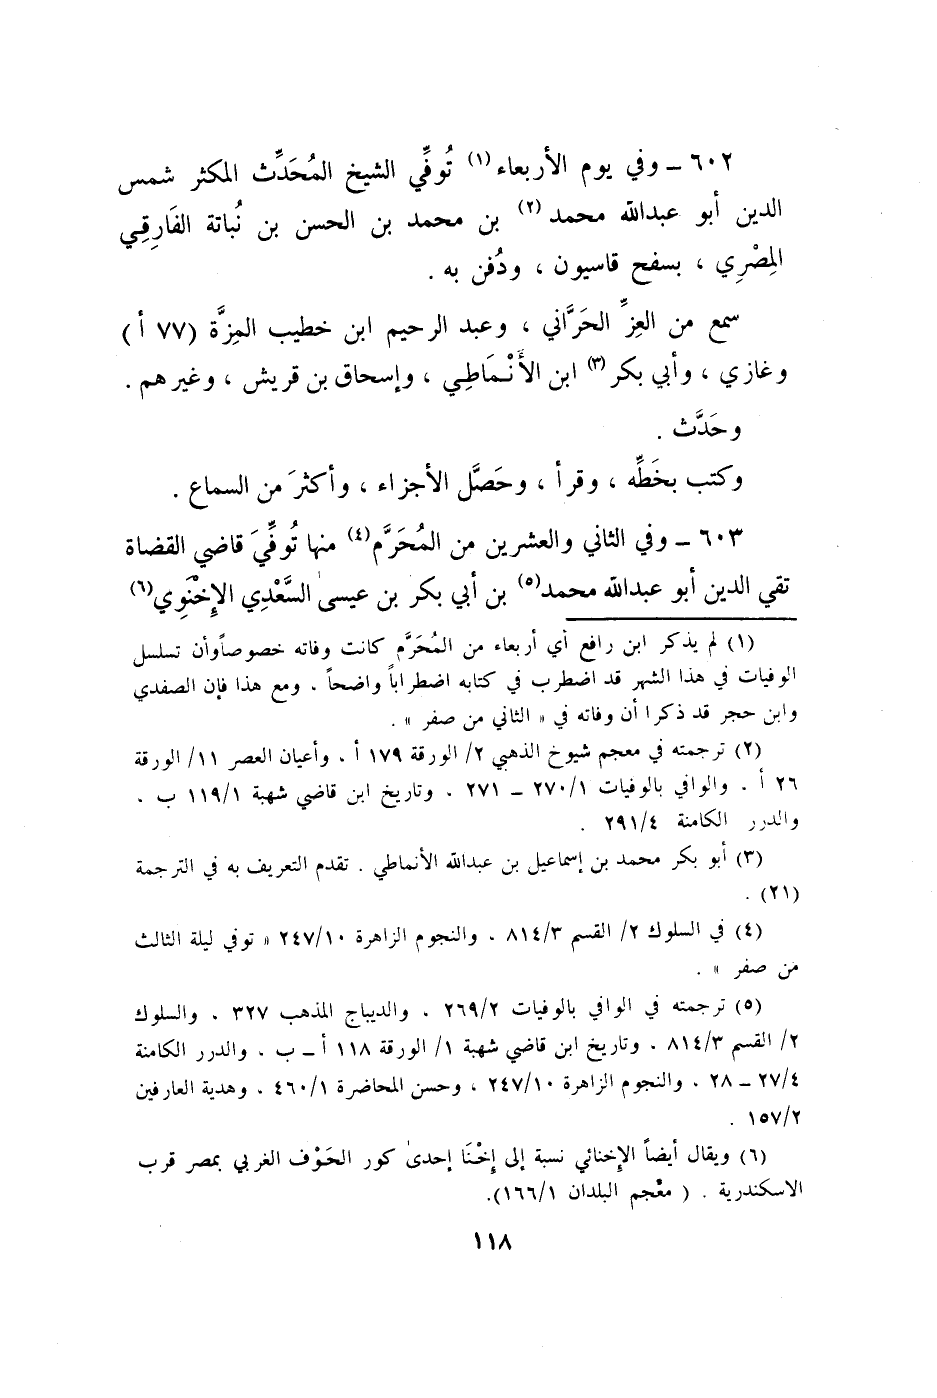 ٦٠٢ ـ وفي يوم الأربعاء (١) تُوفِّي الشيخ المُحَدِّث المكثر شمس
الدين أبو عبدالله محمد (٢) بن محمد بن الحسن بن نُباتة الفَارِقِي
المِصْرِي ، بسفح قاسيون ، ودُفن به .
سمع من العِزِّ الحَرَّاني ، وعبد الرحيم ابن خطيب المِزَّة (٧٧ أ)
وغازي ، وأبي بكر (٣) ابن الأَنْمَاطِي ، وإسحاق بن قريش ، وغيرهم .
وحَدَّث .
وكتب بخَطِّه ، وقرأ ، وحَصَّل الأجزاء ، وأكثرَ من السماع .
٦٠٣ ـ وفي الثاني والعشرين من المُحَرَّم (٤) منها تُوفِّيَ قاضي القضاة
تقي الدين أبو عبدالله محمد (٥) بن أبي بكر بن عيسىٰ السَّعْدِي الإِخْنَوِي (٦)
(١) لم يذكر ابن رافع أي أربعاء من المُحَرَّم كانت وفاته خصوصاً وأن تسلسل
الوفيات في هذا الشهر قد اضطرب في كتابه اضطراباً واضحاً . ومع هذا فإن الصفدي
وابن حجر قد ذكرا أن وفاته في « الثاني من صفر » .
(٢) ترجمته في معجم شيوخ الذهبي ٢/ الورقة ١٧٩ أ . وأعيان العصر ١١/ الورقة
٢٦ أ . والوافي بالوفيات ١/ ٢٧٠ ـ ٢٧١ . وتاريخ ابن قاضي شهبة ١/ ١١٩ ب .
والدرر الكامنة ٤/ ٢٩١ .
(٣) أبو بكر محمد بن إسماعيل بن عبدالله الأنماطي . تقدم التعريف به في الترجمة
(٢١) .
(٤) في السلوك ٢/ القسم ٣/ ٨١٤ . والنجوم الزاهرة ١٠/ ٢٤٧ « توفي ليلة الثالث
من صفر » .
(٥) ترجمته في الوافي بالوفيات ٢/ ٢٦٩ . والديباج المذهب ٣٢٧ . والسلوك
٢/ القسم ٣/ ٨١٤ . وتاريخ ابن قاضي شهبة ١/ الورقة ١١٨ أ ـ ب . والدرر الكامنة
٤/ ٢٧ ـ ٢٨ . والنجوم الزاهرة ١٠/ ٢٤٧ ، وحسن المحاضرة ١/ ٤٦٠ . وهدية العارفين
٢/ ١٥٧ .
(٦) ويقال أيضاً الإخنائي نسبة إلى إِخْنَا إحدىٰ كور الحَوْف الغربي بمصر قرب
الاسكندرية . ( معْجم البلدان ١/ ١٦٦).
١١٨